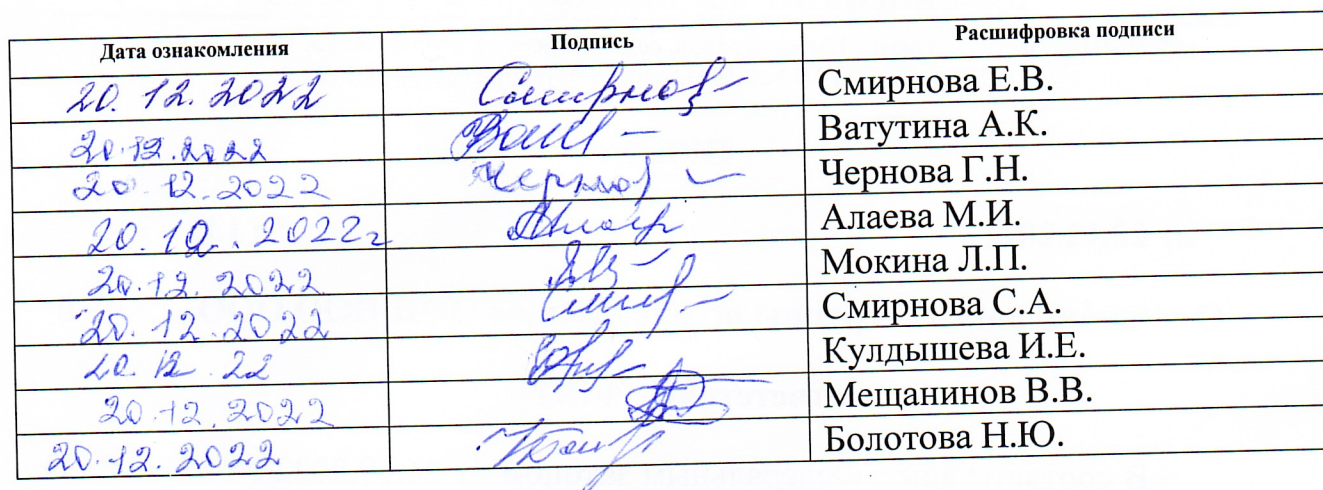 Дата ознакомления Подпись Расшифровка подписи
20.12.2022 Смирнов Смирнова Е.В.
20.12.2022 Ватутина А.К.
20.12.2022 Чернов Чернова Г.Н.
20.12.2022г Алаева М.И.
20.12.2022 Мокина Л.П.
20.12.2022 Смирнова С.А.
20.12.22 Кулдышева И.Е.
20.12.2022 Мещанинов В.В.
20.12.2022 Болотова Н.Ю.